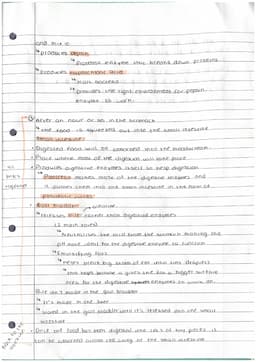 and mix it
↳ produces pepsin
↳ Protease enzyme that breaks down proteins
↳ Produces hydrochloric acid
↳ Kills bacteria
↳ Provides the right environment for pepsin enzyme to work.
After an hour or so in the stomach
↳ the food is squirted out into the small intestine
small intestine:
Digested food will be absorbed into the bloodstream
Place where most of the digestion will take place
Produces digestive enzymes itself to help digestion
↳ Pancreas makes most of the digestive enzymes and
it pushes them into the small intestine in the form of
pancreatic juices
Gall bladder
↳ releases bile rather than digestive enzymes
(2 main roles)
↳ Neutralises the acid from the stomach making the
pH more ideal for the digestive enzyme to function
↳ Emulsifying fats
↳ helps break big blobs of fat into tiny droplets
↳ this helps because it gives the fat a bigger surface
area for the digestive enzymes to work on.
Bile isn't made in the gall bladder
↳ It's made in the liver
↳ stored in the gall bladder until it's released into the small
intestine
Once the food has been digested into lots of tiny pieces it
can be absorbed across the lining of the small intestine